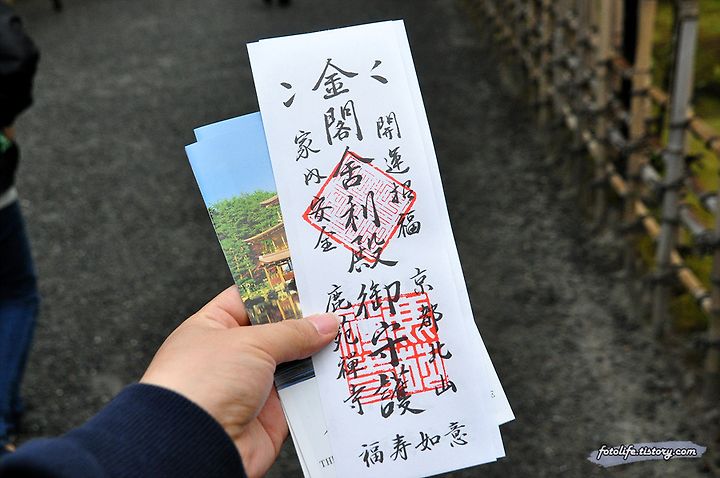 金閣舎利殿御守護
開運招福
家内安全
京都北山
鹿苑禅寺
福寿如意
fotolife.tistory.com